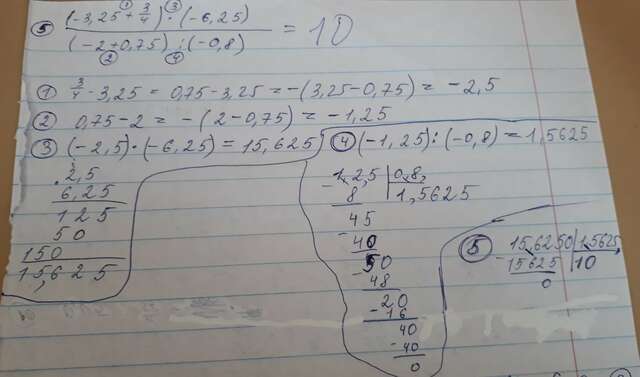 ⑤ (-3,25 + 3/4) · (-6,25)
(-2+0,75) : (-0,8) = 10
① 3/4 - 3,25 = 0,75 - 3,25 = -(3,25-0,75) = -2,5
② 0,75 - 2 = -(2-0,75) = -1,25
③ (-2,5)·(-6,25) = 15,625
2,5
6,25
125
50
150
15,625
④ (-1,25) : (-0,8) = 1,5625
1,2,5 | 0,8,
- 8 | 1,5625
45
- 40
50
- 48
20
- 16
40
- 40
0
⑤ 15,6250 | 1,5625
- 15625 | 10
0